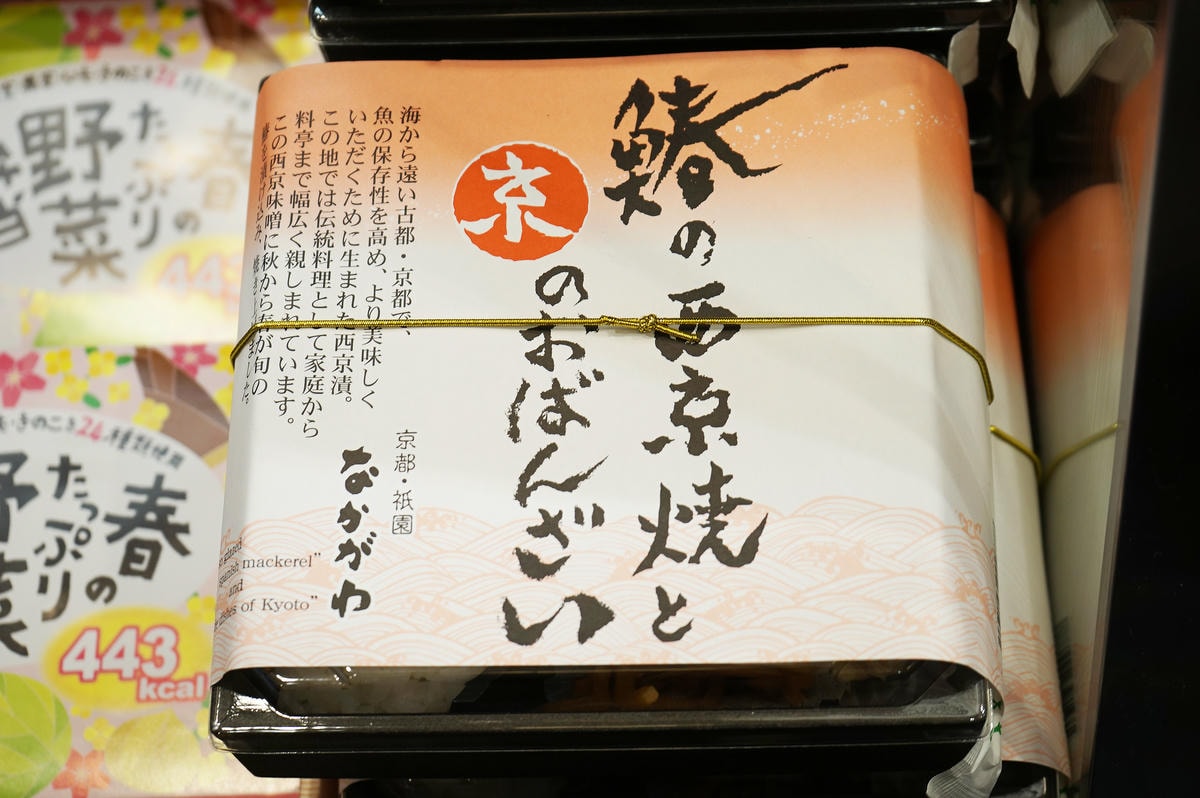 鰆の西京焼と
京
のおばんざい
海から遠い古都・京都で、
魚の保存性を高め、より美味しく
いただくために生まれた西京漬。
この地では伝統料理として家庭から
料亭まで幅広く親しまれています。
この西京味噌に秋から春が旬の
京都・祇園
なかがわ
mackerel”
and
of Kyoto”
春
の
たっぷり
野菜
24種類使用
443
春
の
たっぷり
野菜
443
kcal